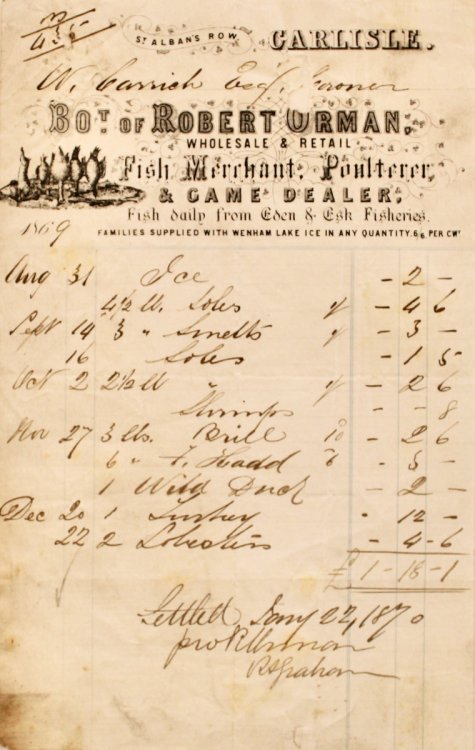 435
ST ALBAN'S ROW, CARLISLE.
W. Carrick Esq.
BOT. OF ROBERT URMAN,
WHOLESALE & RETAIL
Fish Merchant, Poulterer,
& GAME DEALER,
Fish daily from Eden & Esk Fisheries.
1869 FAMILIES SUPPLIED WITH WENHAM LAKE ICE IN ANY QUANTITY. 6/6 PER CWT
Aug 31 Ice - 2 -
4½ lb. Soles 1/ - 4 6
Sept 14 3 " Smelts 1/ - 3 -
16 Soles - 1 5
Oct 2 2½ lb " 1/ - 2 6
Shrimps - - 8
Nov 27 3 lbs. Brill 10 - 2 6
6 " F. Hadd 6 - 3 -
1 Wild Duck - 2 -
Dec 20 1 Turkey - 12 -
22 2 Lobsters - 4 - 6
£ 1 - 18 - 1
Settled Jany 22, 1870
pro R Urman
R Graham